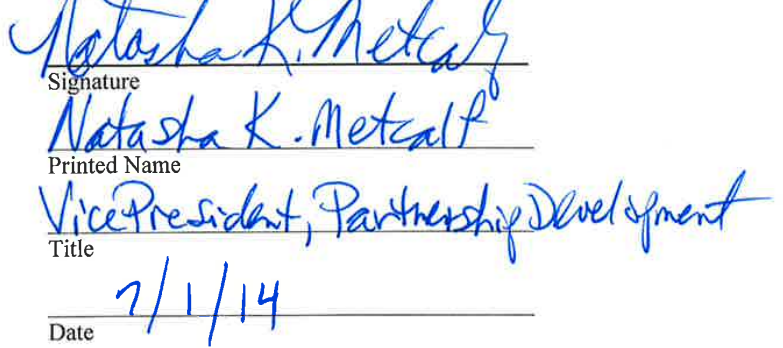 Natasha K. Metcalf
Signature
Natasha K. Metcalf
Printed Name
Vice President, Partnership Development
Title
7/1/14
Date